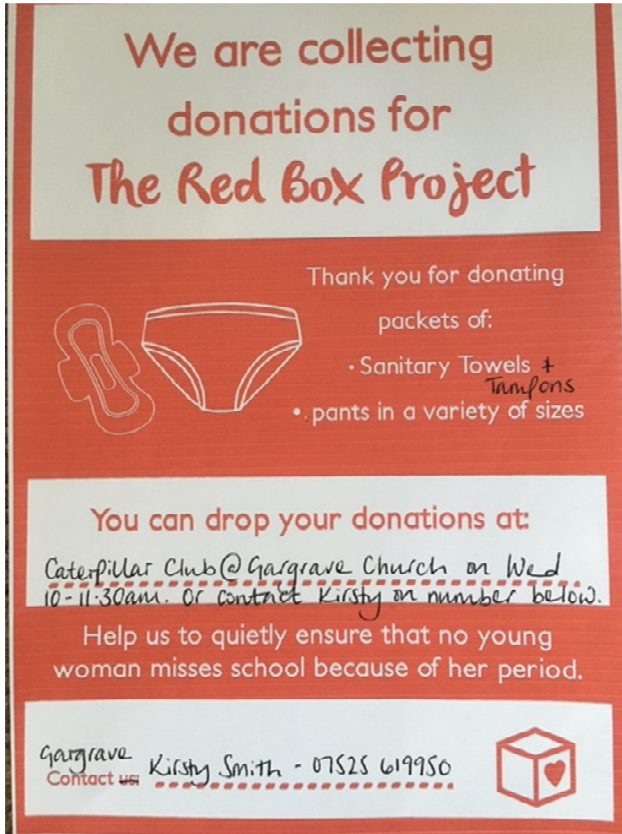 We are collecting
donations for
The Red Box Project
Thank you for donating
packets of:
· Sanitary Towels +
Tampons
• pants in a variety of sizes
You can drop your donations at:
Caterpillar Club @ Gargrave Church on Wed
10-11.30am. Or contact Kirsty on number below.
Help us to quietly ensure that no young
woman misses school because of her period.
Gargrave
Contact us: Kirsty Smith - 07525 619950